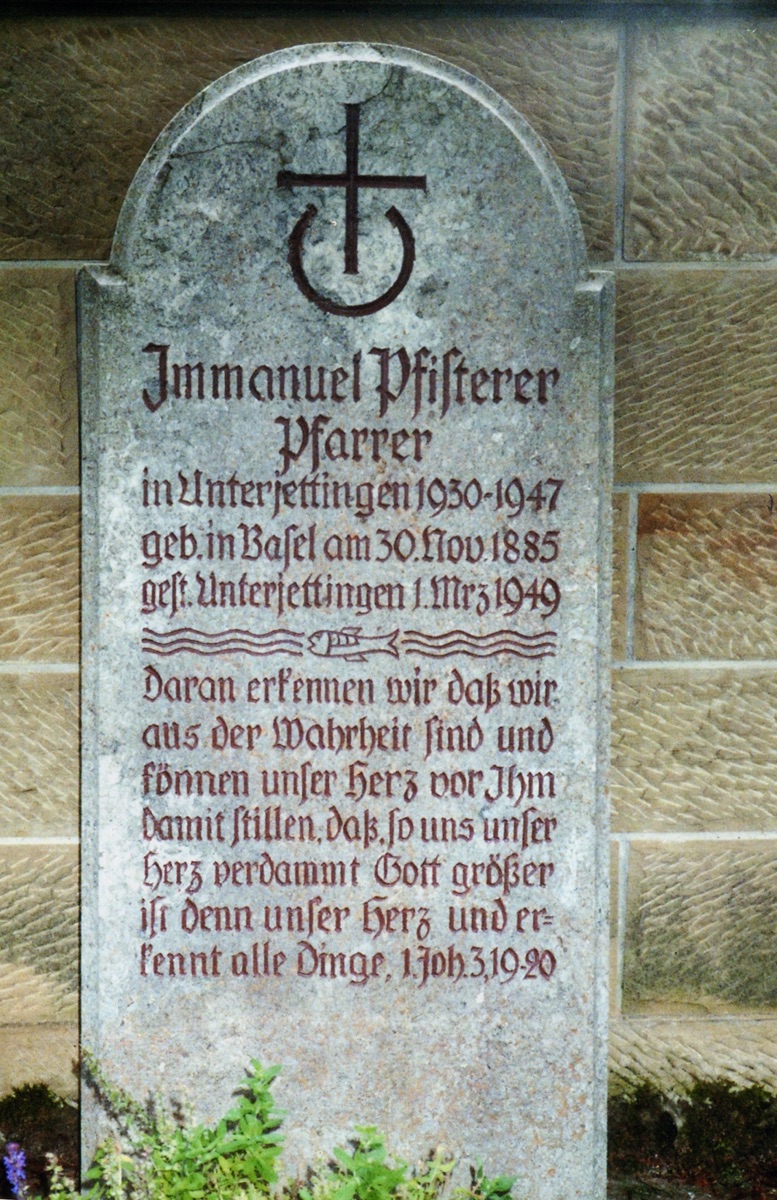 Immanuel Pfisterer
Pfarrer
in Unterjettingen 1930-1947
geb. in Basel am 30. Nov. 1885
gest. Unterjettingen 1. Mrz 1949
Daran erkennen wir daß wir
aus der Wahrheit sind und
können unser Herz vor Ihm
damit stillen, daß, so uns unser
Herz verdammt Gott größer
ist denn unser Herz und er=
kennt alle Dinge. 1. Joh. 3, 19-20